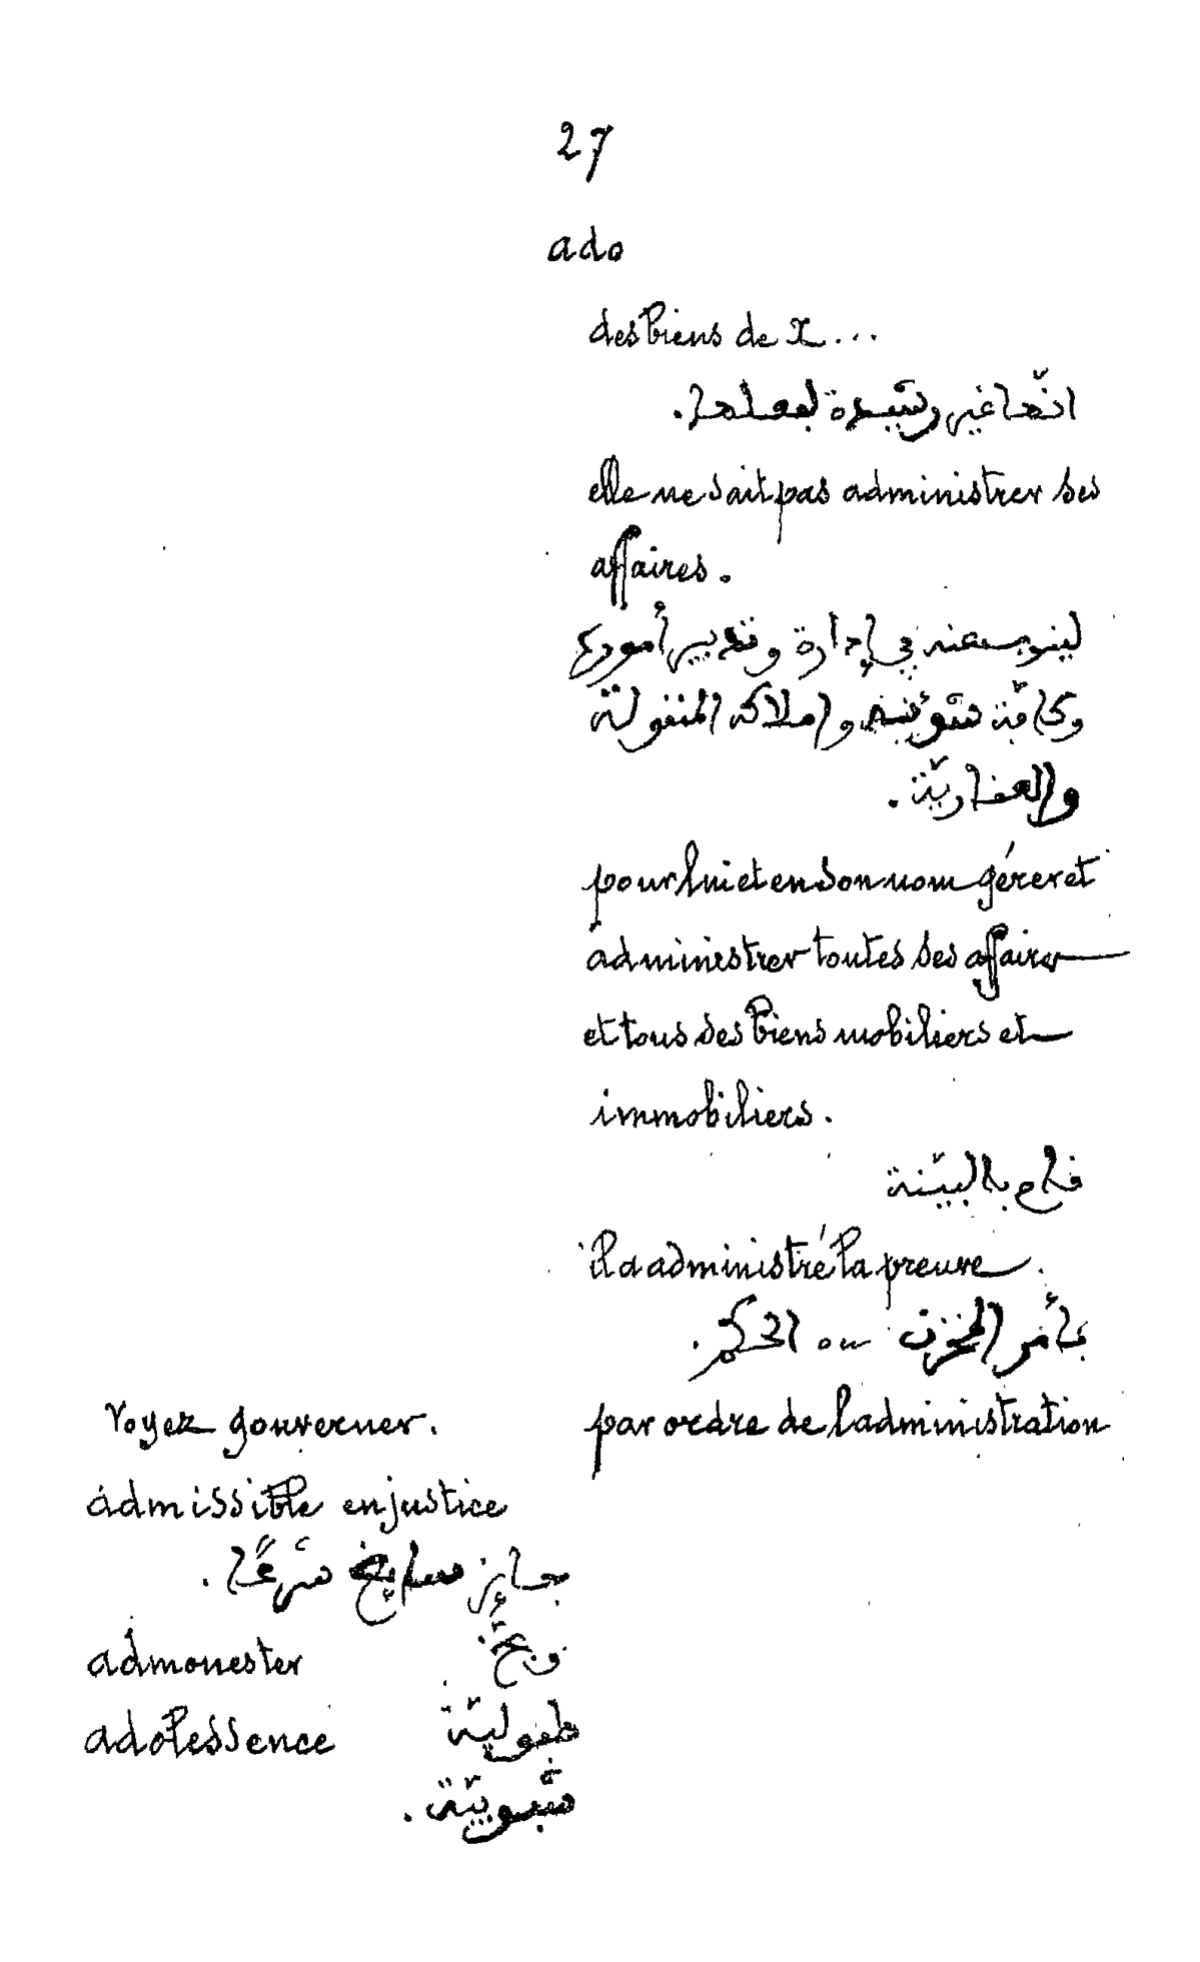 27
ado
des biens de X...
انّها غير رشيدة لفعلها.
elle ne sait pas administrer ses
affaires.
لينوب عنه في إدارة وتدبير أموره
وكافّة شوٴنه واملاكه المنقولة
والعقاريّة.
pour lui et en son nom gérer et
administrer toutes ses affaires
et tous ses biens mobiliers et
immobiliers.
قام بالبيّنة
il a administré la preuve.
بأمر المخزن ou الحكم.
par ordre de l'administration
Voyez gouverner.
admissible en justice
جايز سايغ شرعًا.
admonester
adolessence طفوليّة
شبوبيّة.